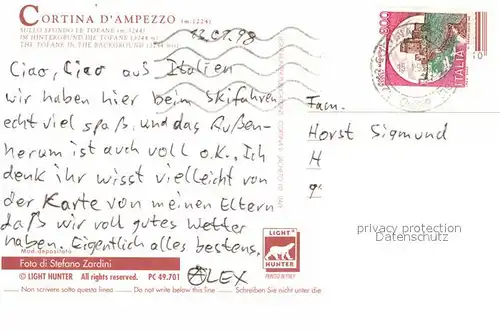 CORTINA D'AMPEZZO (m. 1224)
SULLO SFONDO LE TOFANE (m. 3244)
IM HINTERGRUND DIE TOFANE (3244 m)
THE TOFANE IN THE BACKGROUND (3244 m)
12.01.98
800
ITALIA
Ciao, Ciao aus Italien
wir haben hier beim Skifahren
echt viel spaß, und das Außen-
herum ist auch voll o.k., Ich
denk ihr wisst vielleicht von
der Karte von meinen Eltern
daß wir voll gutes Wetter
haben. Eigentlich alles bestens.
ALEX
Fam.
Horst Sigmund
H
privacy protection
Datenschutz
Mod. depositato
Foto di Stefano Zardini
© LIGHT HUNTER All rights reserved. PC 49.701
Non scrivere sotto questa linea Do not write below this line Schreiben Sie nicht unter die
LIGHT
HUNTER
PRINTED IN ITALY